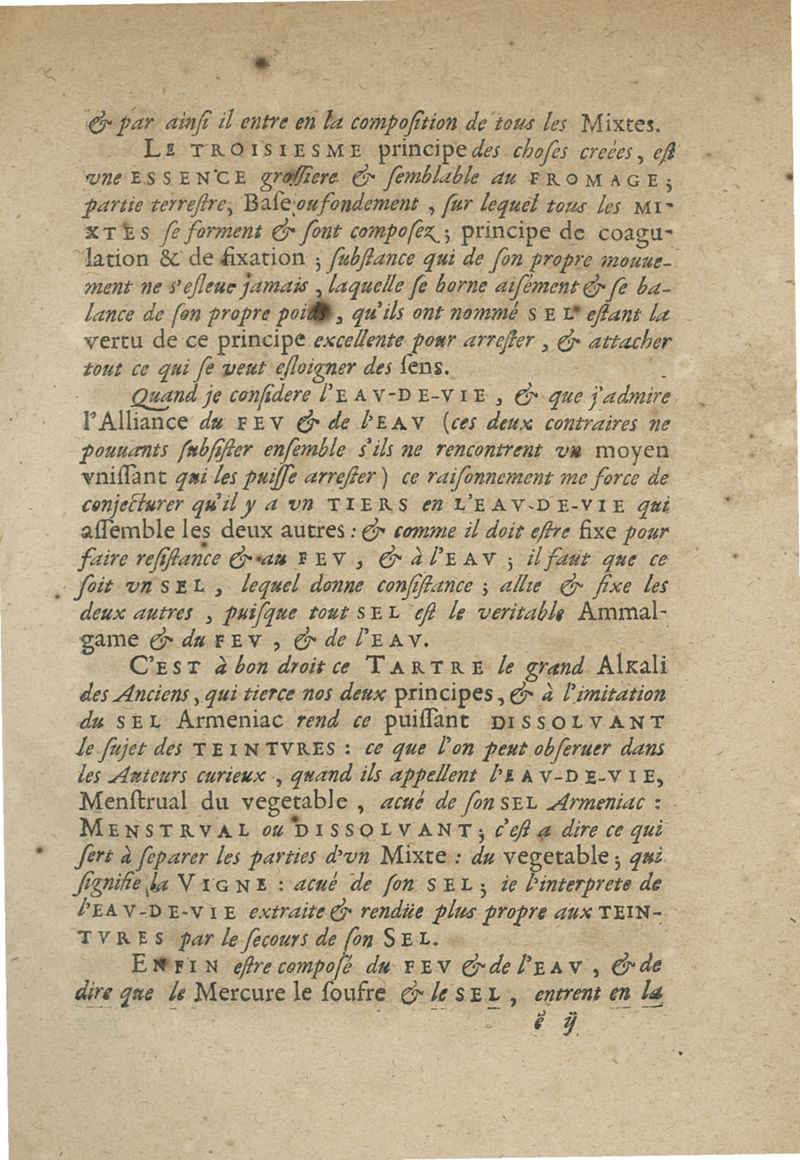 & par ainſi il entre en la compoſition de tous les Mixtes.
LE TROISIESME principe des choſes creées, eſt
vne ESSENCE groſſiere & ſemblable au FROMAGE;
partie terreſtre, Baſe ou fondement, ſur lequel tous les MI-
XTES ſe forment & ſont compoſez; principe de coagu-
lation & de fixation; ſubſtance qui de ſon propre mouue-
ment ne s'eſleue jamais, laquelle ſe borne aiſément & ſe ba-
lance de ſon propre poids, qu'ils ont nommé SEL eſtant la
vertu de ce principe excellente pour arreſter, & attacher
tout ce qui ſe veut eſloigner des ſens.
Quand je conſidere l'EAV-DE-VIE, & que j'admire
l'Alliance du FEV & de l'EAV (ces deux contraires ne
pouuants ſubſiſter enſemble s'ils ne rencontrent vn moyen
vniſſant qui les puiſſe arreſter) ce raiſonnement me force de
conjecturer qu'il y a vn TIERS en L'EAV-DE-VIE qui
aſſemble les deux autres: & comme il doit eſtre fixe pour
faire reſiſtance & au FEV, & à l'EAV; il faut que ce
ſoit vn SEL, lequel donne conſiſtance; allie & fixe les
deux autres, puiſque tout SEL eſt le veritable Ammal-
game & du FEV, & de l'EAV.
C'EST à bon droit ce TARTRE le grand Alkali
des Anciens, qui tierce nos deux principes, & à l'imitation
du SEL Armeniac rend ce puiſſant DISSOLVANT
le ſujet des TEINTVRES: ce que l'on peut obſeruer dans
les Auteurs curieux, quand ils appellent l'EAV-DE-VIE,
Menſtrual du vegetable, acué de ſon SEL Armeniac:
MENSTRVAL ou DISSOLVANT; c'eſt a dire ce qui
ſert à ſeparer les parties d'vn Mixte: du vegetable; qui
ſignifie la VIGNE: acué de ſon SEL; ie l'interprete de
l'EAV-DE-VIE extraite & rendüe plus propre aux TEIN-
TVRES par le ſecours de ſon SEL.
ENFIN eſtre compoſé du FEV & de l'EAV, & de
dire que le Mercure le ſoufre & le SEL, entrent en la
ë ÿ